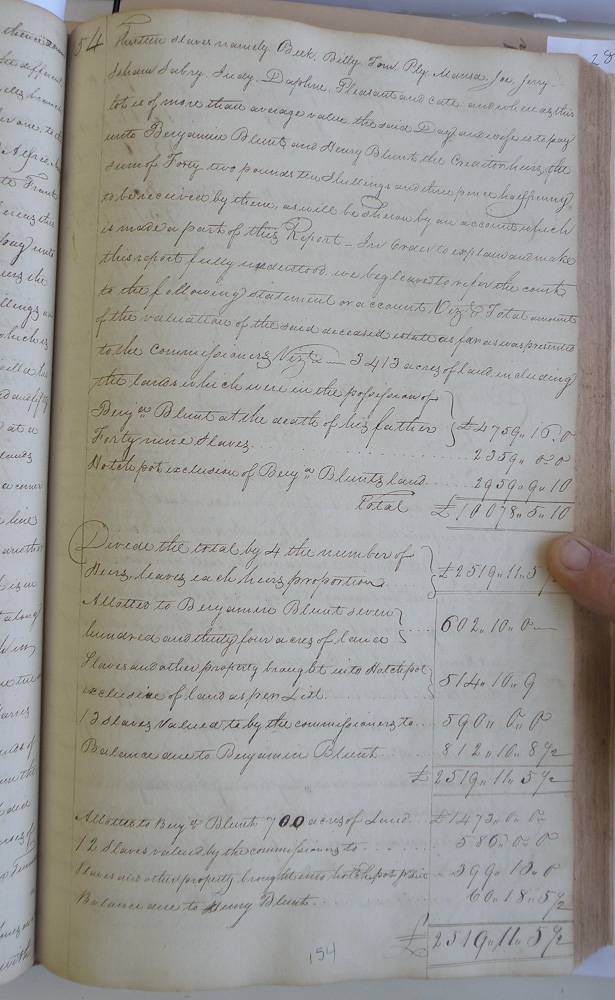 154
Thirteen slaves namely Beck, Billy, Tom, Ply, Mansa, Joe, Jerry
Isham, Sukry, Judy, Daphne, Pleasant and Cate, and whereas this
lot is of more than average value the said Day and wife is to pay
unto Benjamin Blunt, and Henry Blunt, the Creator heirs, the
sum of Forty two pounds ten Shillings and three pence halfpenny
to be received by them, as will be shewn by an account which
is made a part of this Report – In Order to explain and make
this report fully understood, we beg leave to refer the court
to the following statement or account, Viz Total amount
of the valuation of the said deceased estate as far as was presented
to the commissioners Viz — 3413 acres of land including
the lands which were in the possession of
Benja Blunt at the death of his father £4759,, 16,, 0
Forty nine Slaves 2359,, 0,, 0
Hotchpot exclusion of Benja Blunts land 2959,, 9,, 10
Total £10078,, 5,, 10
Divide the total by 4 the number of
Heirs, leaves each heirs proportion £2519,, 11,, 5 1/2
Allotted to Benjamin Blunt seven
hundred and thirty four acres of land 602,, 10,, 0
Slaves and other property brought into Hotchpot
exclusive of land as per List 514,, 10,, 9
13 slaves valued to by the commissioners to 590,, 0,, 0
Balance due to Benjamin Blunt 812,, 10,, 8 1/2
£ 2519,, 11,, 5 1/2
Allotted to Blunt 700 acres of Land £1473,, 0,, 0
12 Slaves valued by the commissioners to 586,, 0,, 0
Slaves and other property brought into hotchpot 399,, 13,, 0
Balance due to Henry Blunt 60,, 18,, 5 1/2
£ 2519,, 11,, 5 1/2
154